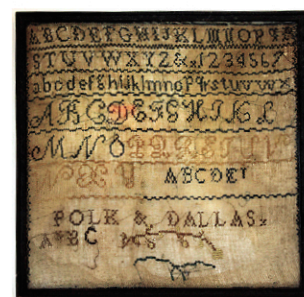 ABCDEFGHIJKLMNOPQR
STUVWXYZ&x1234567
abcdefghijklmnopqrstuvwx
ABCDEFGHIKL
MNOPQRSTUV
ABCDET
POLK & DALLASx
ABC